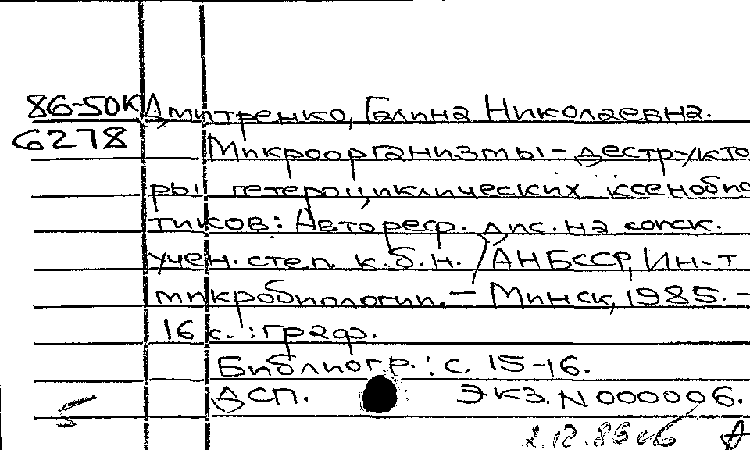 86-50К Дмитренко, Галина Николаевна.
6278 Микроорганизмы - деструкто
ры гетероциклических ксенобио
тиков: Автореф. дис. на соиск.
учен. степ. к.б.н. / АН БССР, Ин-т
микробиологии. - Минск, 1985. -
16 с.: граф.
Библиогр.: с. 15-16.
ДСП. ЭКЗ. N 000006.